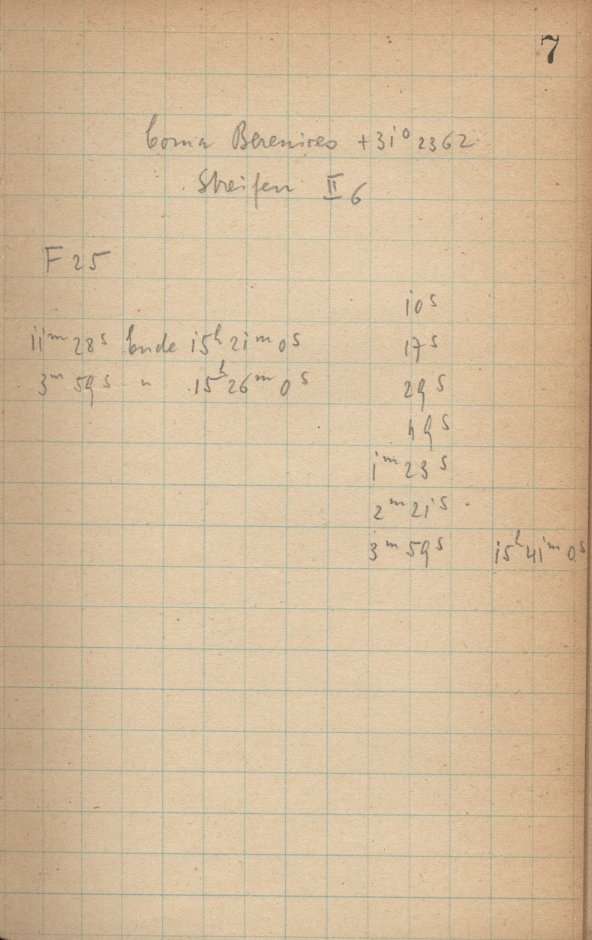 7
Coma Berenices +31° 2362
Streifen II 6
F 25
10s
11m 28s Ende 15h 21m 0s 17s
3m 59s " 15h 26m 0s 29s
49s
1m 23s
2m 21s
3m 59s 15h 41m 0s